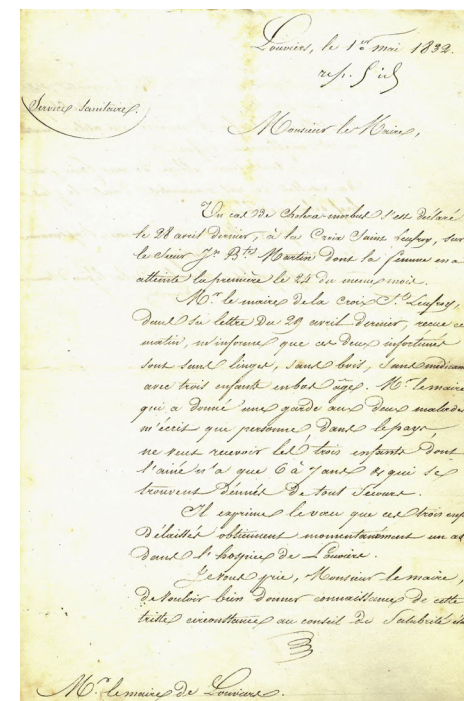 Louviers, le 1er mai 1832.
Service Sanitaire.
Monsieur le Maire,
Un cas de Cholera-morbus s'est déclaré
le 28 avril dernier, à la Croix Saint Leufroy, sur
le Sieur Jn Bte Martin dont la femme en a
atteinte la première le 24 du même mois.
Mr. le maire de la croix St. Leufroy,
dans sa lettre du 29 avril dernier, reçue ce
matin, m'informe que ces deux infortunés
sont sans linges, sans bois, sans médicam
avec trois enfants en bas âge. Mr. le maire
qui a donné une garde aux deux malades
m'écrit que personne dans le pays
ne veut recevoir les trois enfants dont
l'ainé n'a que 6 à 7 ans et qui se
trouvent dénués de tout Secours.
Il exprime le vœu que ces trois enf
délaissés obtiennent momentanément un as
dans l'hospice de Louviers.
Je vous prie, Monsieur le maire,
de vouloir bien donner connaissance de cette
triste circonstance au conseil de Salubrité
Mr. le maire de Louviers.